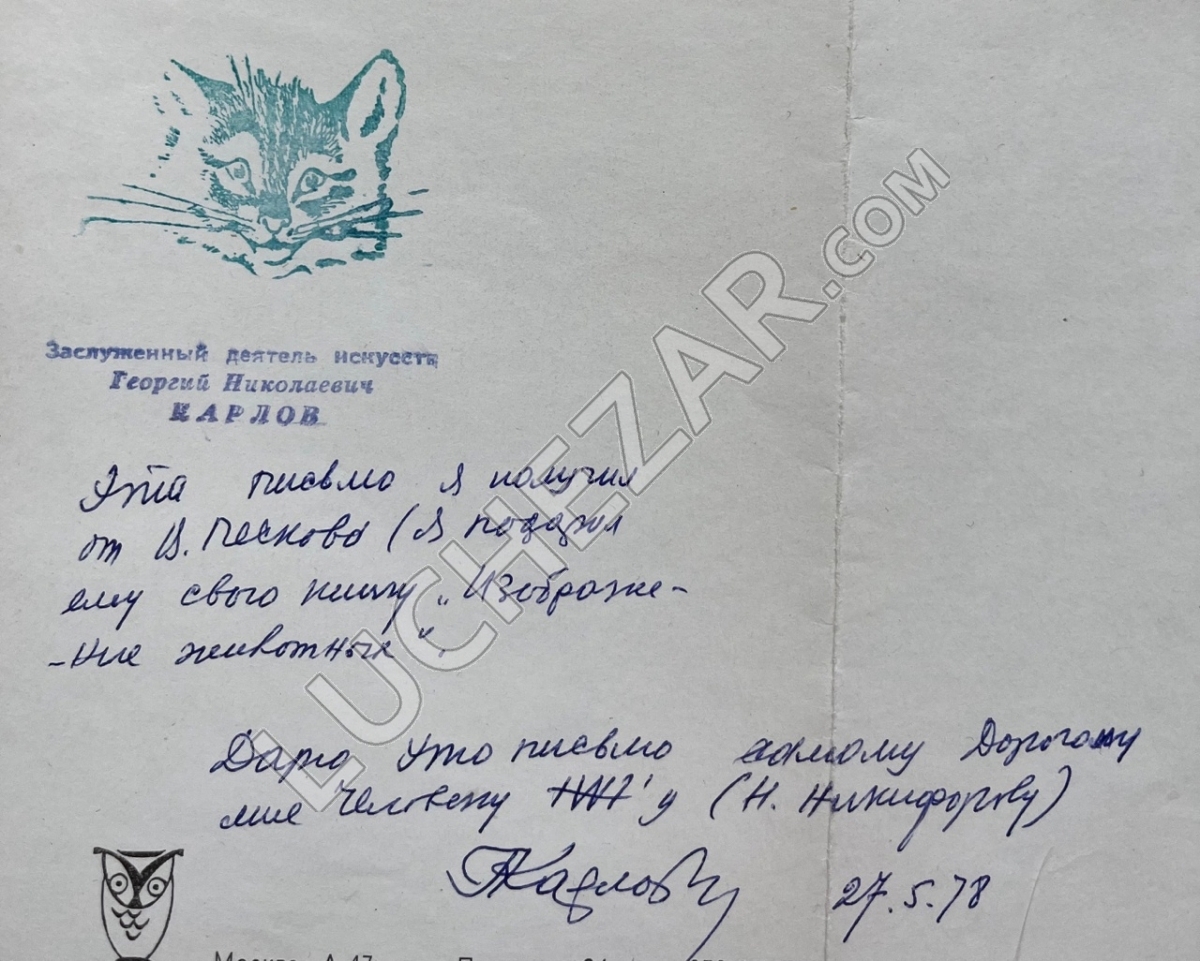 Заслуженный деятель искусств
Георгий Николаевич
КАРЛОВ
Эта письмо я получил
от В. Пескова (я подарил
ему свою книгу „Изображе-
-ние животных".
Дарю это письмо самому Дорогому
мне Человеку ННН'у (Н. Никифорову)
ГКарлов
27.5.78
Москва, А-47
LUCHEZAR.COM